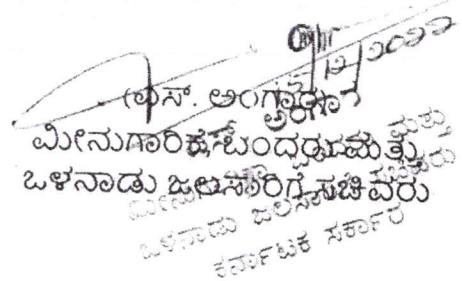 (ಎಸ್. ಅಂಗಾರ)
ಮೀನುಗಾರಿಕೆ, ಬಂದರು ಮತ್ತು
ಒಳನಾಡು ಜಲಸಾರಿಗೆ ಸಚಿವರು
ಒಳನಾಡು ಜಲಸಾರಿಗೆ ಸಚಿವರು
ಕರ್ನಾಟಕ ಸರ್ಕಾರ